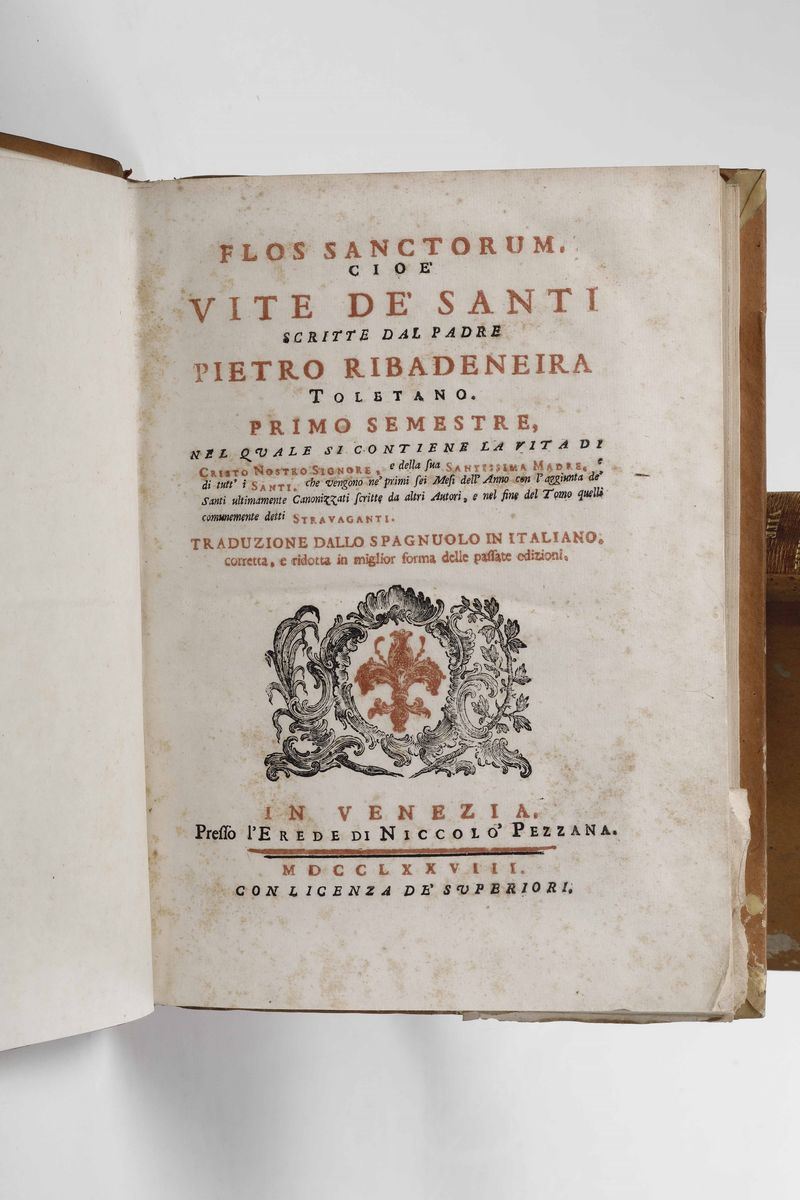 FLOS SANCTORUM.
CIOE'
VITE DE' SANTI
SCRITTE DAL PADRE
PIETRO RIBADENEIRA
TOLETANO.
PRIMO SEMESTRE,
NEL QVALE SI CONTIENE LA VITA DI
CRISTO NOSTRO SIGNORE, e della ſua SANTISSIMA MADRE, e
di tutt' i SANTI, che vengono ne' primi ſei Meſi dell' Anno con l'aggiunta de'
Santi ultimamente Canonizzati ſcritte da altri Autori, e nel fine del Tomo quelli
comunemente detti STRAVAGANTI.
TRADUZIONE DALLO SPAGNUOLO IN ITALIANO,
corretta, e ridotta in miglior forma delle paſſate edizioni.
IN VENEZIA,
Preſſo l'EREDE DI NICCOLO' PEZZANA.
MDCCLXXVIII.
CON LICENZA DE' SVPERIORI.
VITE